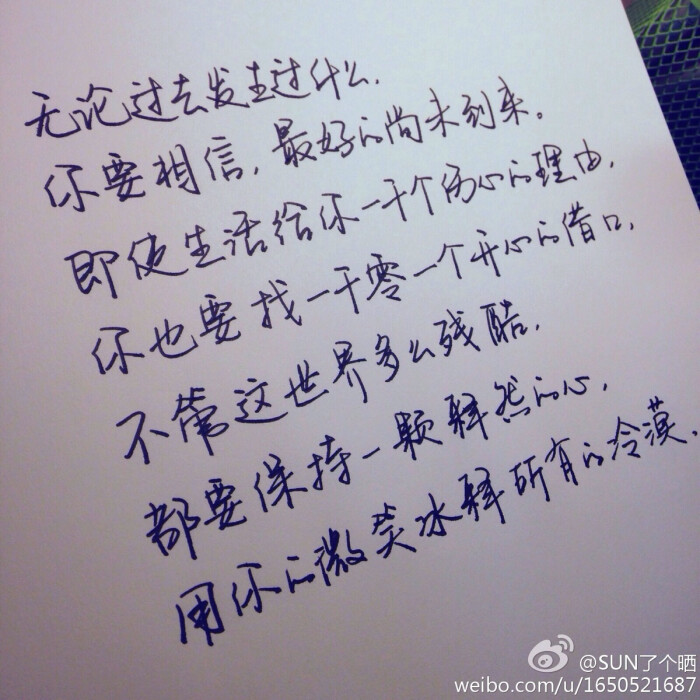 无论过去发生过什么.
你要相信,最好的尚未到来。
即使生活给你一千个伤心的理由,
你也要找一千零一个开心的借口,
不管这世界多么残酷,
都要保持一颗释然的心,
用你的微笑冰释所有的冷漠.
@SUN了个晒
weibo.com/u/1650521687